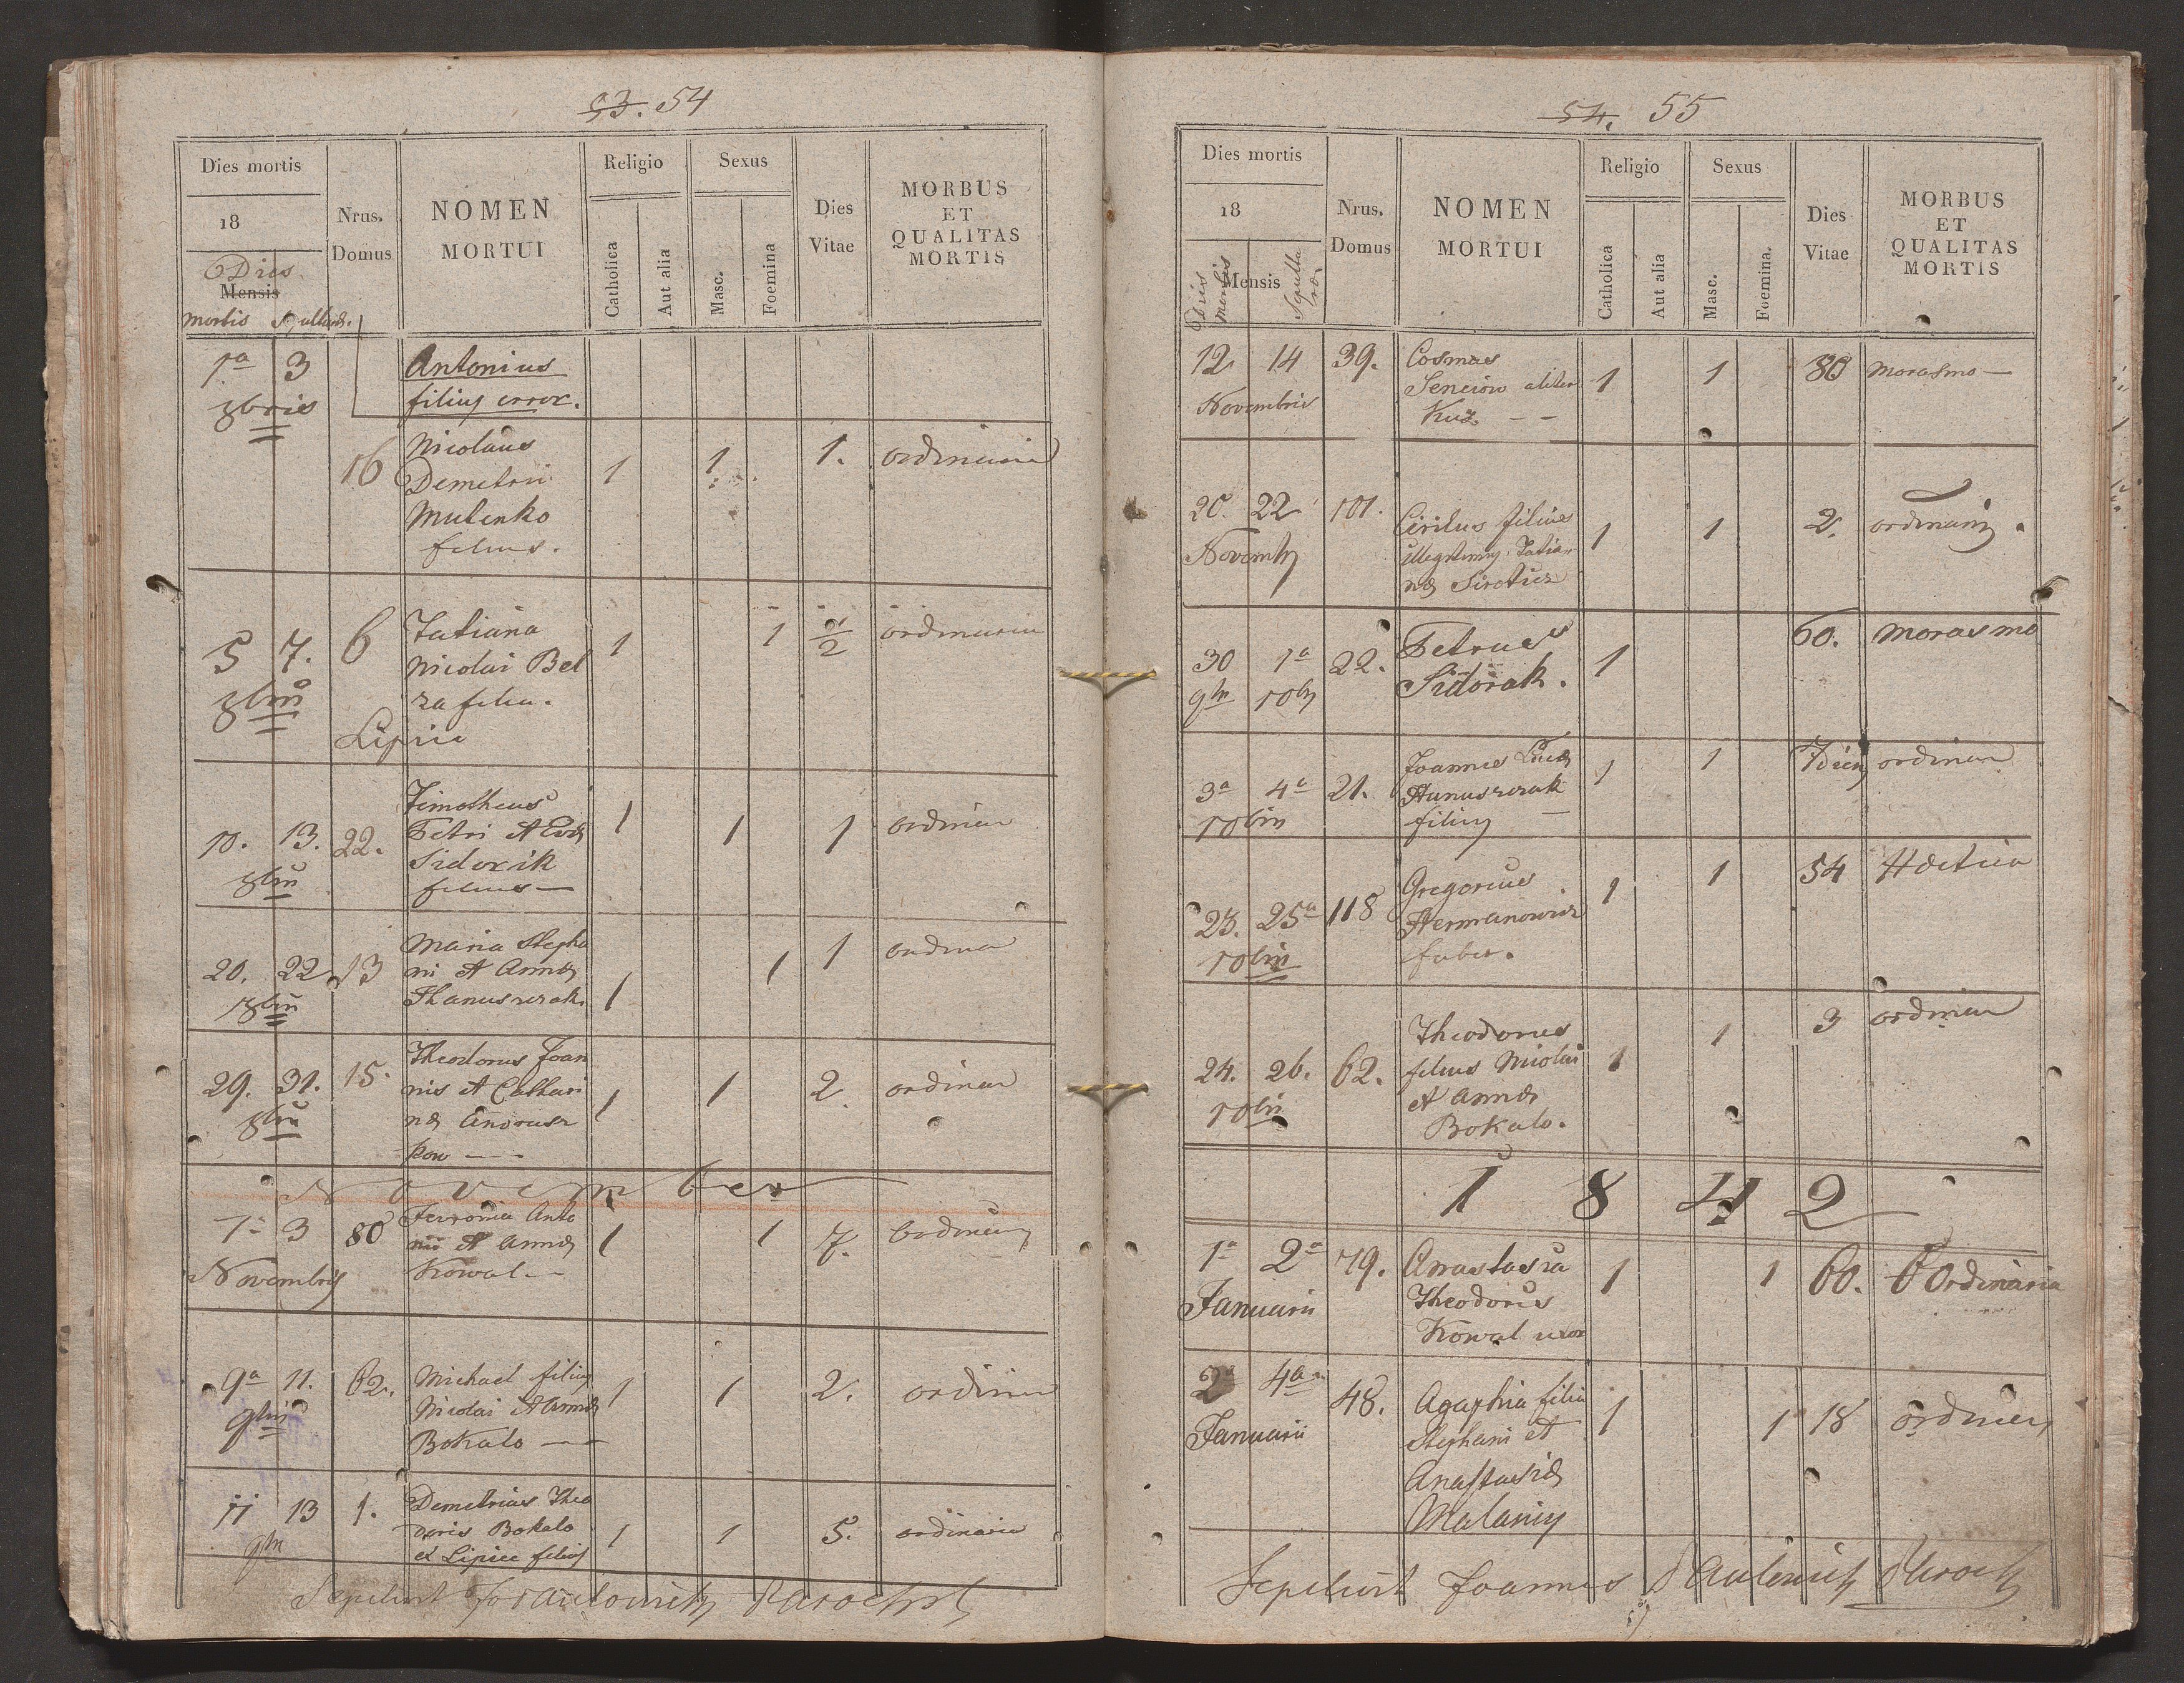 53. 54
Dies mortis
18
Dies
Mensis
mortis
Nrus. Domus
NOMEN MORTUI
Religio
Catholica
Aut alia
Sexus
Masc.
Foemina
Dies Vitae
MORBUS ET QUALITAS MORTIS
1a 3 Antonius
8bris filius error.
16 Nicolaus 1 1 1. ordinaria
Demetrii
Mulenko
filius.
5 7. 6 Tatiana 1 1 1/2 ordinaria
8bris Nicolai Bel
za filia.
Lipie
10. 13. 22. Timotheus 1 1 1 ordinar
Petri et
8bris Sidorik
filius —
20. 22 13 Maria Stepha 1 1 1 ordinar
ni et Annae
8bris Hanuszczak.
29. 31. 15. Theodorus Joan 1 1 2. ordinar
nis et Cathari
8bris nae Andrusz
kow ---
November
1a 3 80 Fewronia Anto 1 1 7. ordinar
nii et Annae
Novembris Kowal —
9a 11. 62. Michael filius 1 1 2. ordinar
Nicolai et Annae
9bris Bokalo —
11 13 1. Demetrius Theo 1 1 5. ordinaria
doris Bokalo
9bris et Lipice filius
Sepelivit Parochus
54. 55
Dies mortis
18
Mensis
Dies mortis
Nrus. Domus
NOMEN MORTUI
Religio
Catholica
Aut alia
Sexus
Masc.
Foemina.
Dies Vitae
MORBUS ET QUALITAS MORTIS
12 14 39. Cosmas 1 1 80 Morasmo —
Senciow aliter
Novembris Kuz. — —
20. 22 101. Cirilus filius 1 1 2. ordinaria
illegitimus Tatia
Novembris nae Sirotiez
30 1a 22. Petrus 1 60. Morasmo
9br 10br Sidorak.
3a 4a 21. Joannes Lucae 1 1 7 dies ordinar
Hanuszczak
10bris filius —
23. 25a 118 Gregorius 1 1 54 Hectica
Hermanowicz
10bris faber.
24. 26. 62. Theodorus 1 1 3 ordinar
filius Nicolai
10bris et Annae
Bokalo.
1842
1a 2a 79. Anastasia 1 1 60. Ordinaria
Theodoris
Januarii Kowal uxor
2a 4a 48. Agaphia filia 1 1 18 ordinar
Stephani et
Januarii Anastasiae
Malaniy
Sepelivit Joannes Parochus